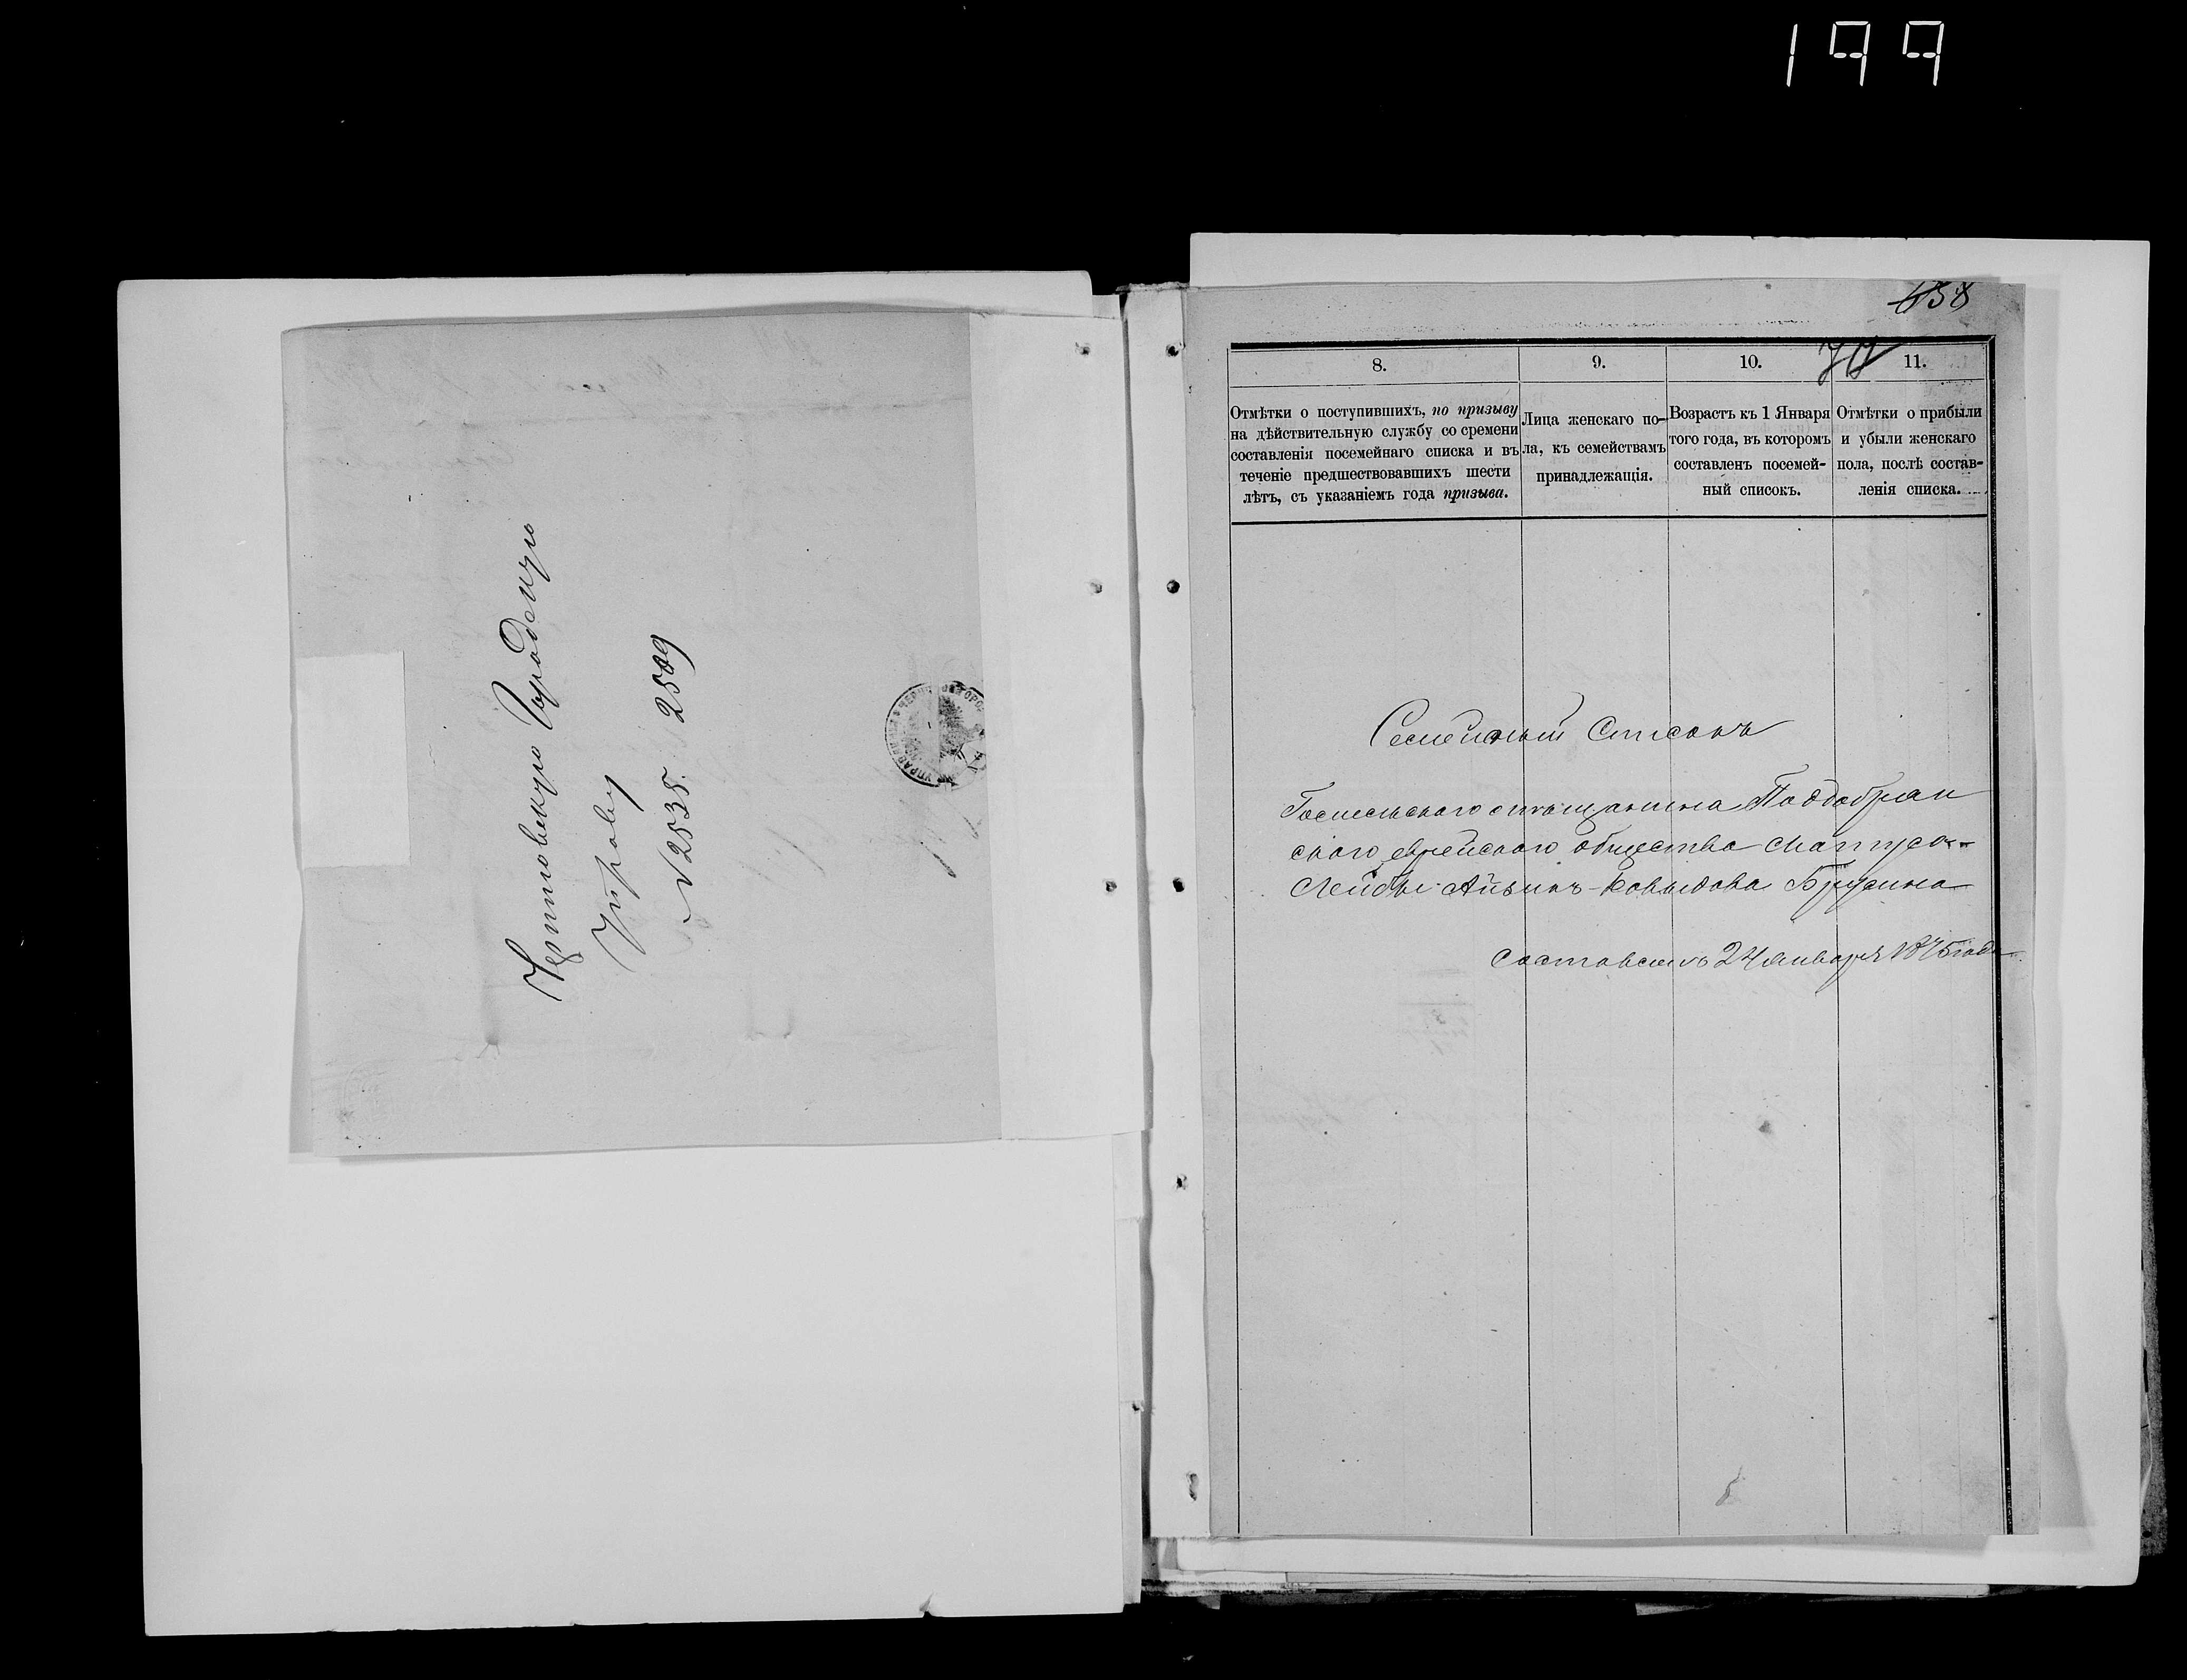 199
Черниговскую Городскую
Управу
№ 2535. 2509
458
70
8.
9.
10.
11.
Отмѣтки о поступившихъ, по призыву
на дѣйствительную службу со сремени
составленія посемейнаго списка и въ
теченіе предшествовавшихъ шести
лѣтъ, съ указаніемъ года призыва.
Лица женскаго по-
ла, къ семействамъ
принадлежащія.
Возрастъ къ 1 Января
того года, въ которомъ
составленъ посемей-
ный списокъ.
Отмѣтки о прибыли
и убыли женскаго
пола, послѣ состав-
ленія списка.
Семейный Списокъ
мѣщанина Поддобрян
скаго еврейскаго общества
Лейбы Айзикъ Брусина
составленъ 24 января 1875 года